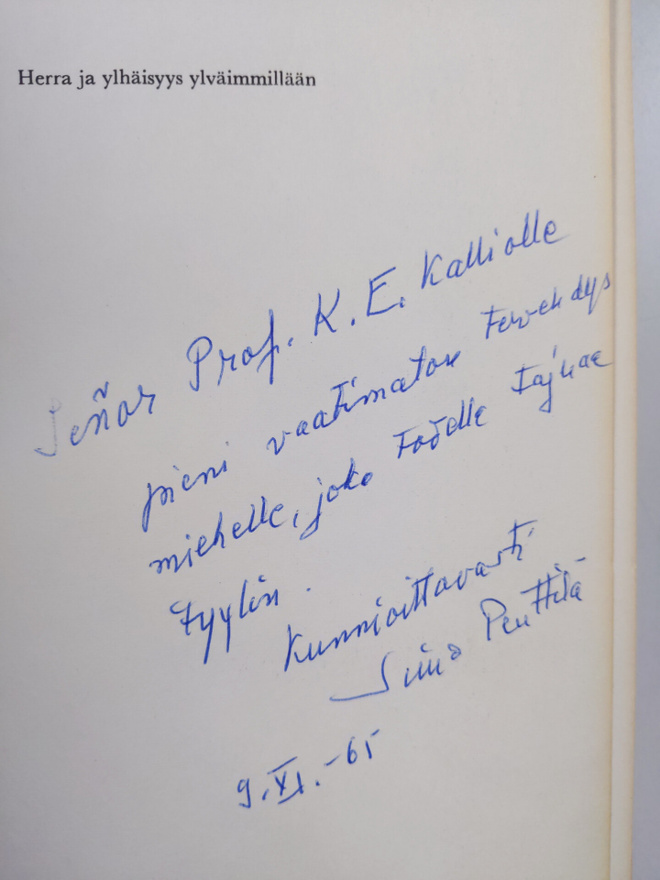 Herra ja ylhäisyys ylväimmillään
Señor Prof. K. E. Kalliolle
pieni vaatimaton tervehdys
miehelle, joka todella tajuaa
tyylin.
Kunnioittavasti
Simo Penttilä
9.XI.-65